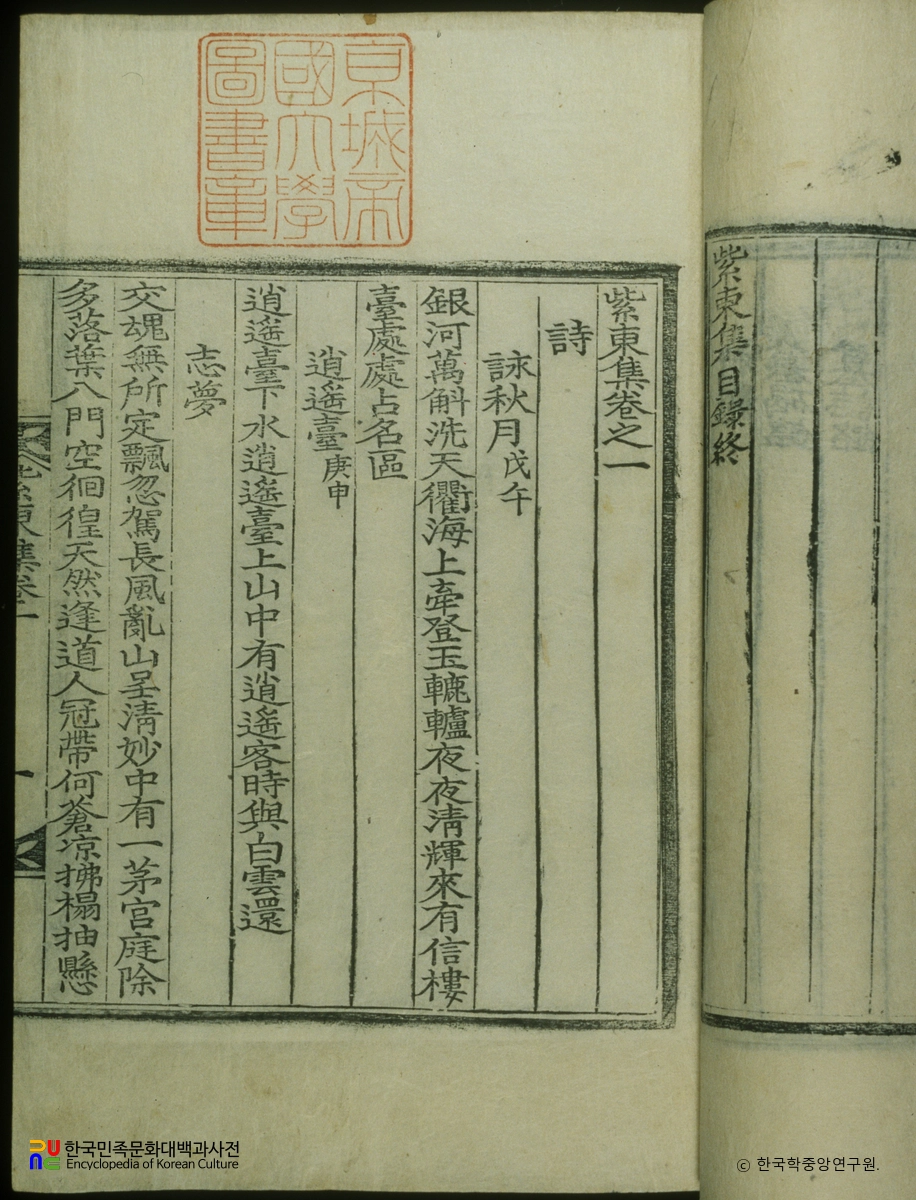 紫東集目錄終
京城帝
國大學
圖書章
紫東集卷之一
詩
詠秋月戊午
銀河萬斛洗天衢海上牽登玉轆轤夜夜淸輝來有信樓
臺處處占名區
逍遙臺庚申
逍遙臺下水逍遙臺上山中有逍遙客時與白雲還
志夢
交魂無所定飄忽駕長風亂山呈淸妙中有一茅宮庭除
多落葉八門空徊徨天然逢道人冠帶何蒼凉拂榻抽懸
紫東集卷一
一
한국민족문화대백과사전
Encyclopedia of Korean Culture
ⓒ 한국학중앙연구원.